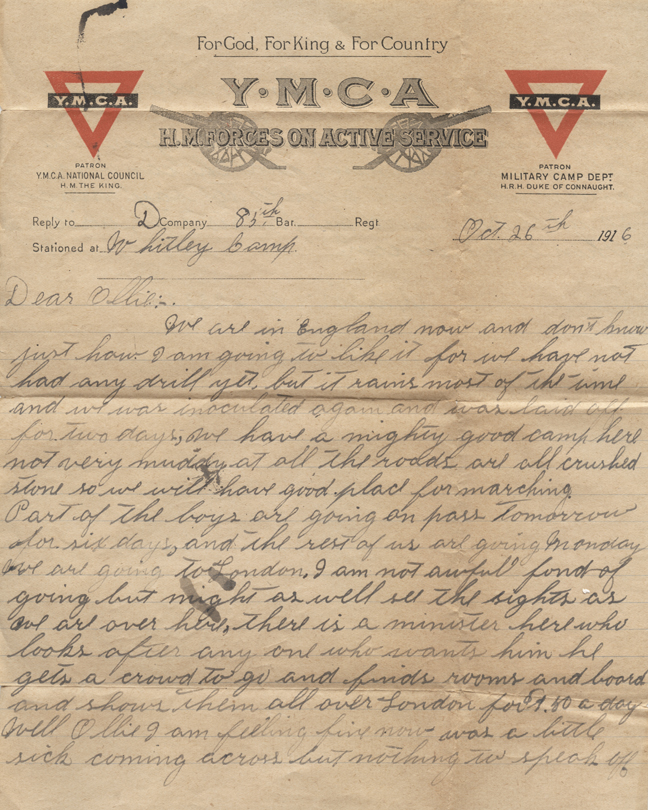 For God, For King & For Country
Y·M·C·A
H.M. FORCES ON ACTIVE SERVICE
Y.M.C.A.
PATRON
Y.M.C.A. NATIONAL COUNCIL
H.M. THE KING.
Y.M.C.A.
PATRON
MILITARY CAMP DEPT
H.R.H. DUKE OF CONNAUGHT.
Reply to D Company 85th Bat. Regt
Stationed at Whitley Camp.
Oct. 26th 1916
Dear Ollie:-.
We are in England now and don't know
just how I am going to like it for we have not
had any drill yet, but it rains most of the time
and we was inoculated again and was laid off
for two days, we have a mighty good camp here
not very muddy at all the roads are all crushed
stone so we will have good place for marching
Part of the boys are going on pass tomorrow
for six days, and the rest of us are going Monday
we are going to London. I am not awful fond of
going but might as well see the sights as
we are over here, there is a minister here who
looks after any one who wants him he
gets a crowd to go and finds rooms and board
and shows them all over London for $1.50 a day
Well Ollie I am feeling fine now was a little
sick coming across but nothing to speak off